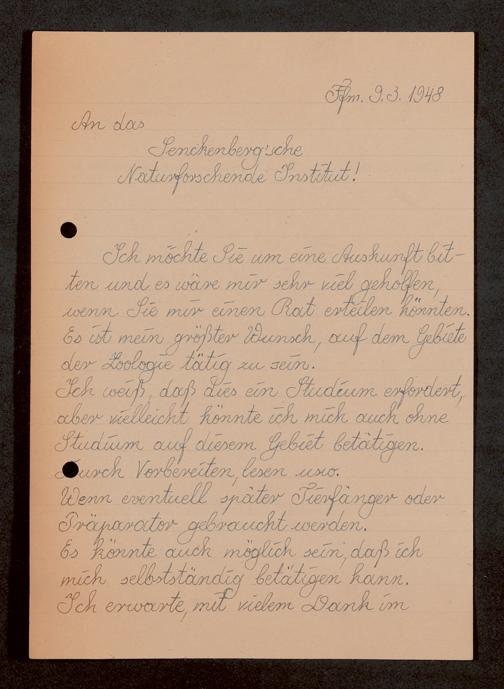 Ffm. 9.3. 1948
An das
Senckenberg'sche
Naturforschende Institut!
Ich möchte Sie um eine Auskunft bit-
ten und es wäre mir sehr viel geholfen,
wenn Sie mir einen Rat erteilen könnten.
Es ist mein größter Wunsch, auf dem Gebiete
der Zoologie tätig zu sein.
Ich weiß, daß dies ein Studium erfordert,
aber vielleicht könnte ich mich auch ohne
Studium auf diesem Gebiet betätigen.
Durch Vorbereiten, lesen usw.
Wenn eventuell später Tierfänger oder
Präparator gebraucht werden.
Es könnte auch möglich sein, daß ich
mich selbstständig betätigen kann.
Ich erwarte, mit vielem Dank im